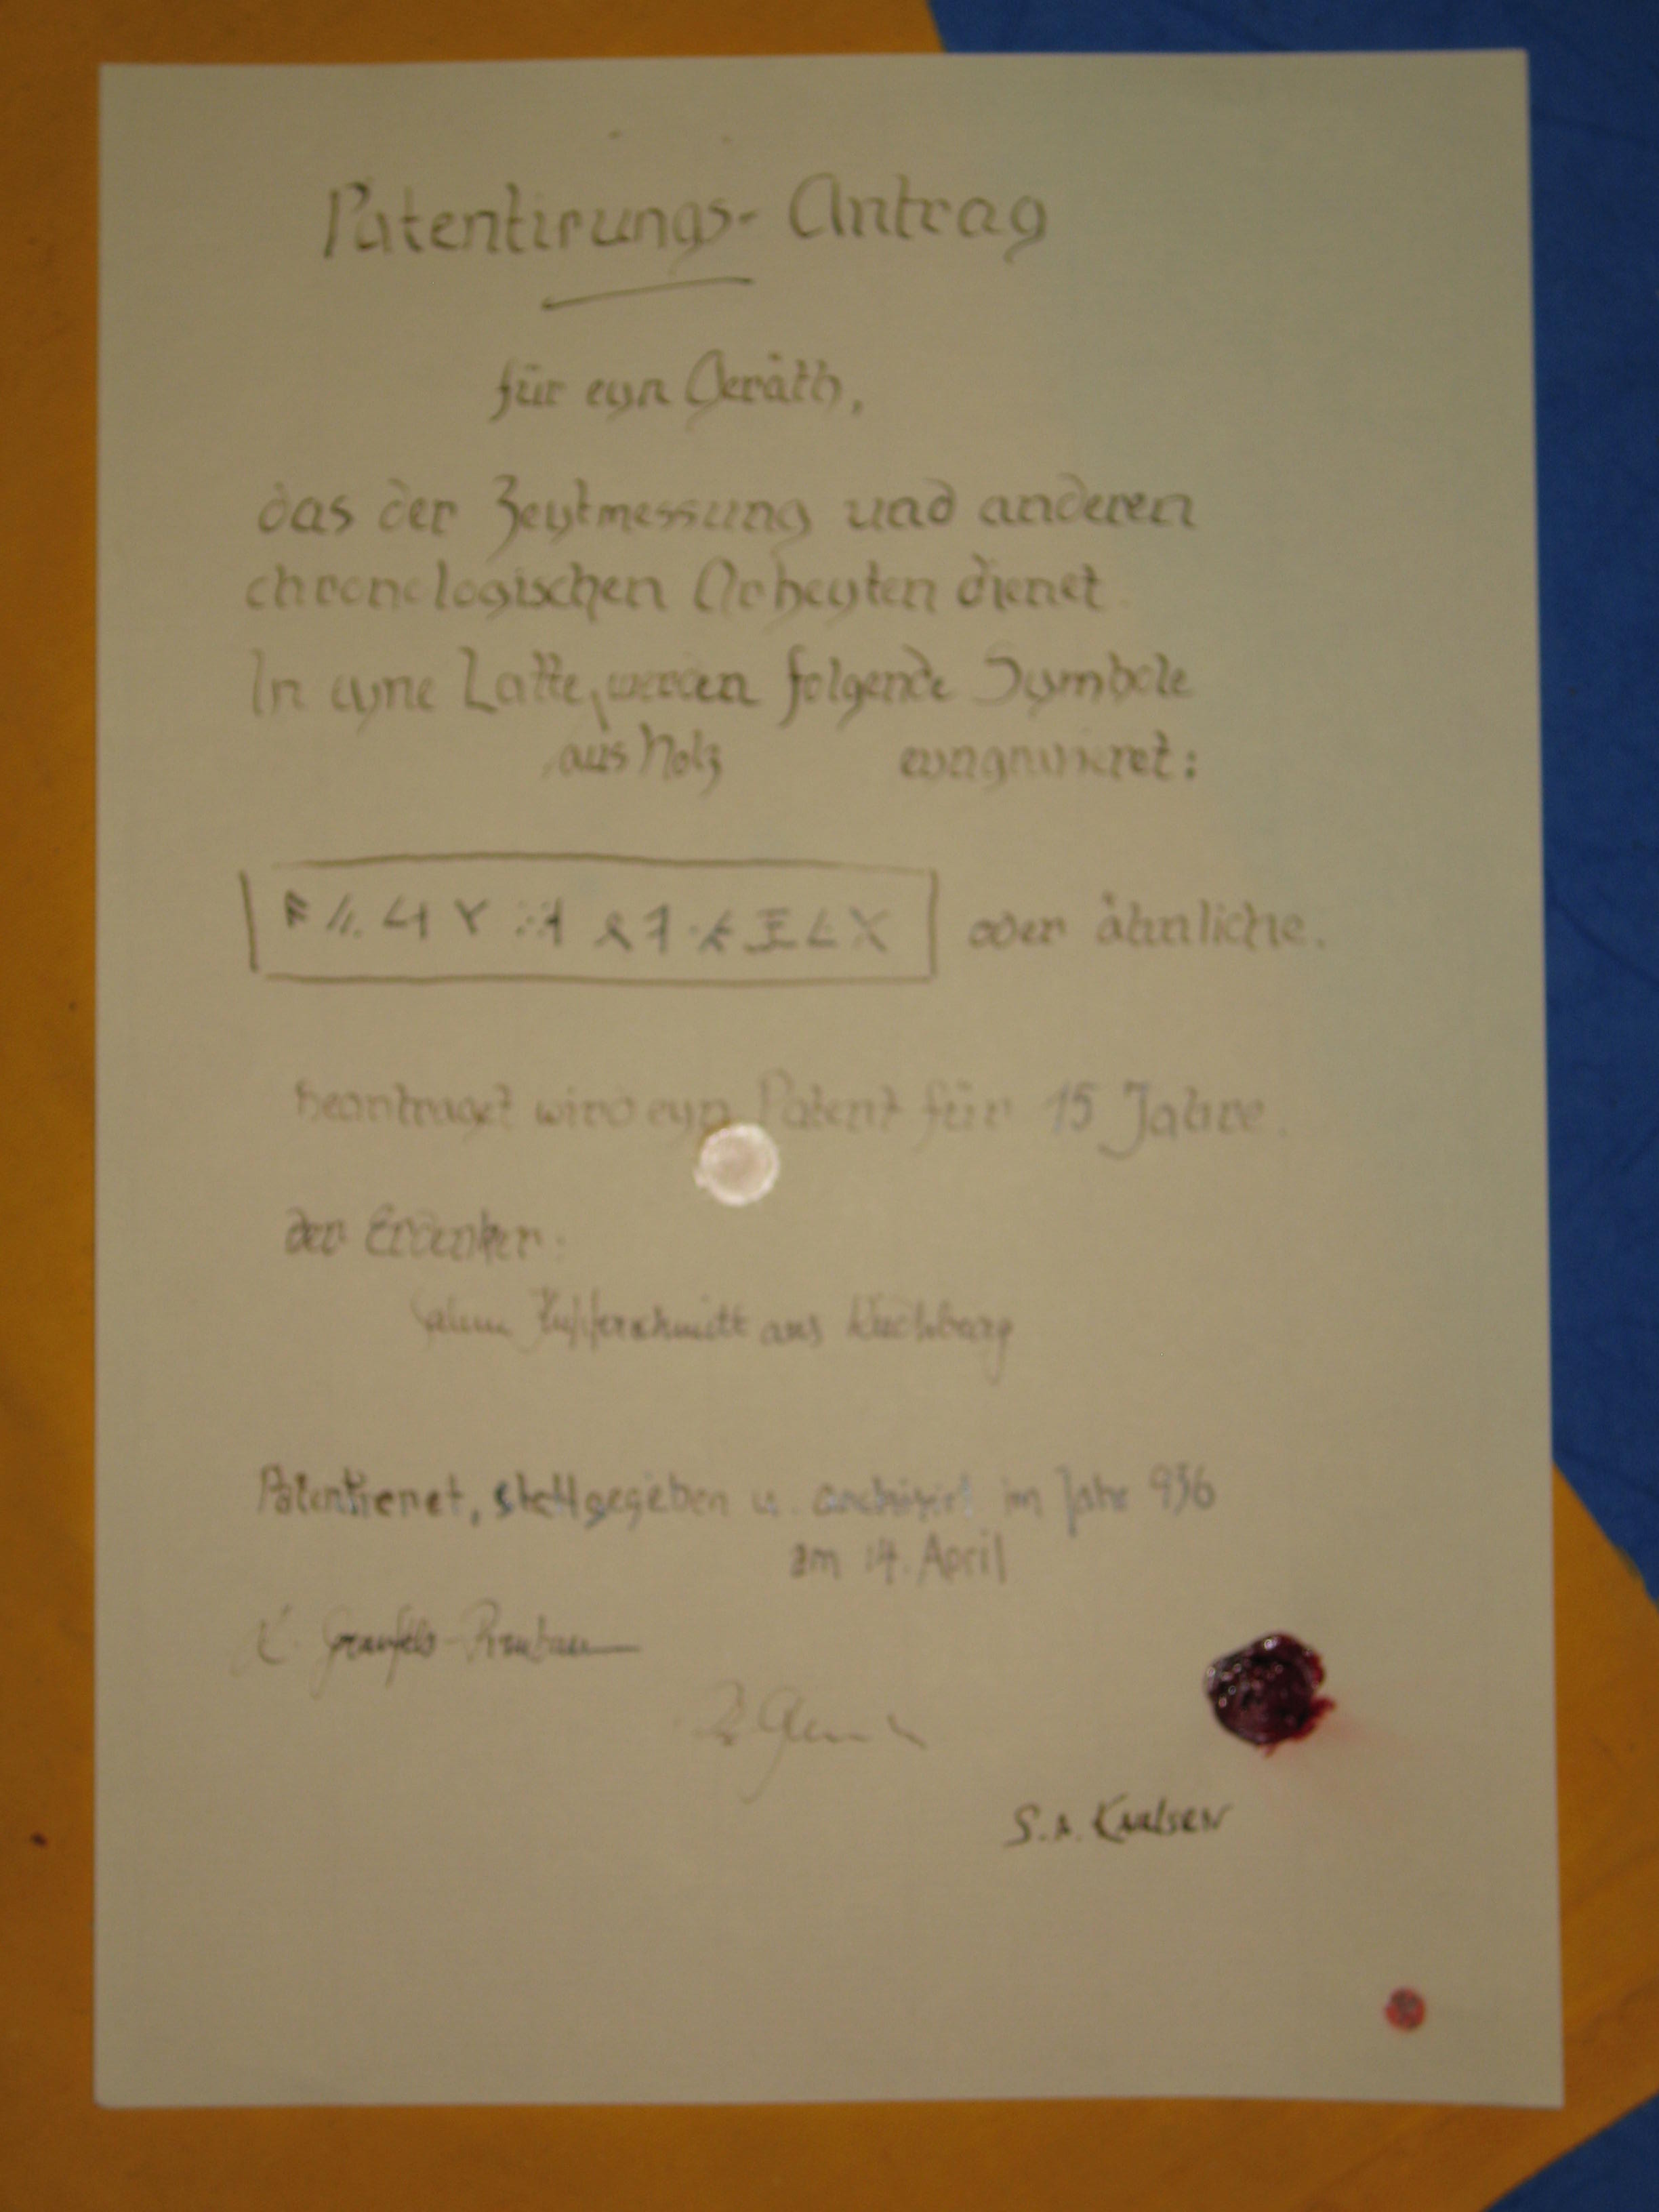 Patentirungs-Antrag
für eyn Geräth,
das der Zeytmessung und anderen
chronologischen Arbeyten dienet.
In eyne Latte werden folgende Symbole
aus Holz
oder ähnliche.
beantraget wird eyn Patent für 15 Jahre.
der Erdenker:
aus
Patentieret, stattgegeben u. archivirt im Jahr 936
am 14. April
S. A. Knelsen